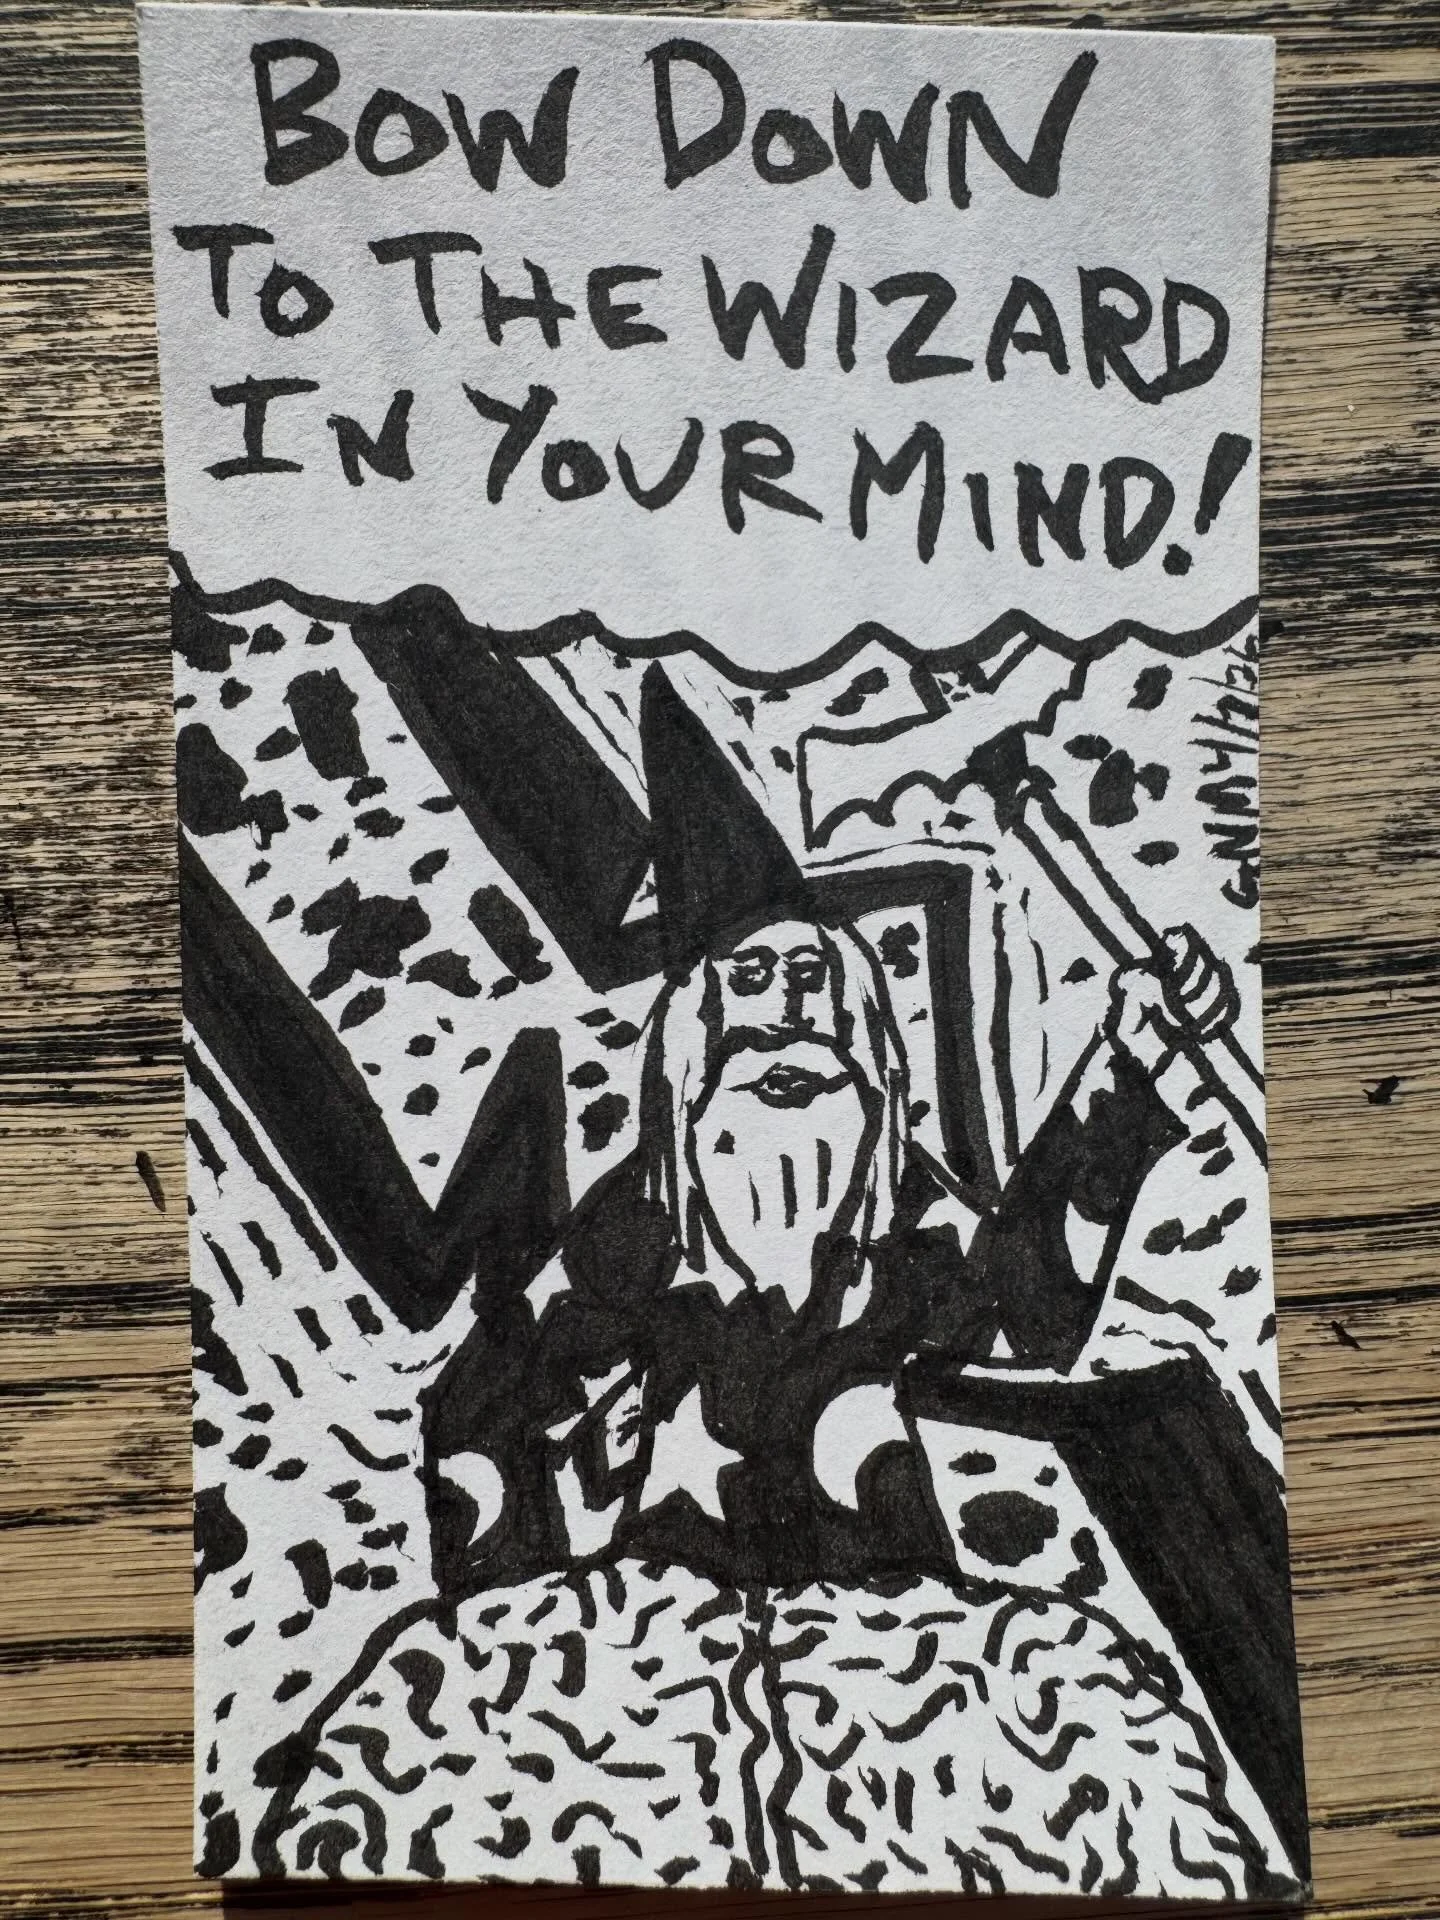 BOW DOWN
TO THE WIZARD
IN YOUR MIND!
GNM 4/7/26